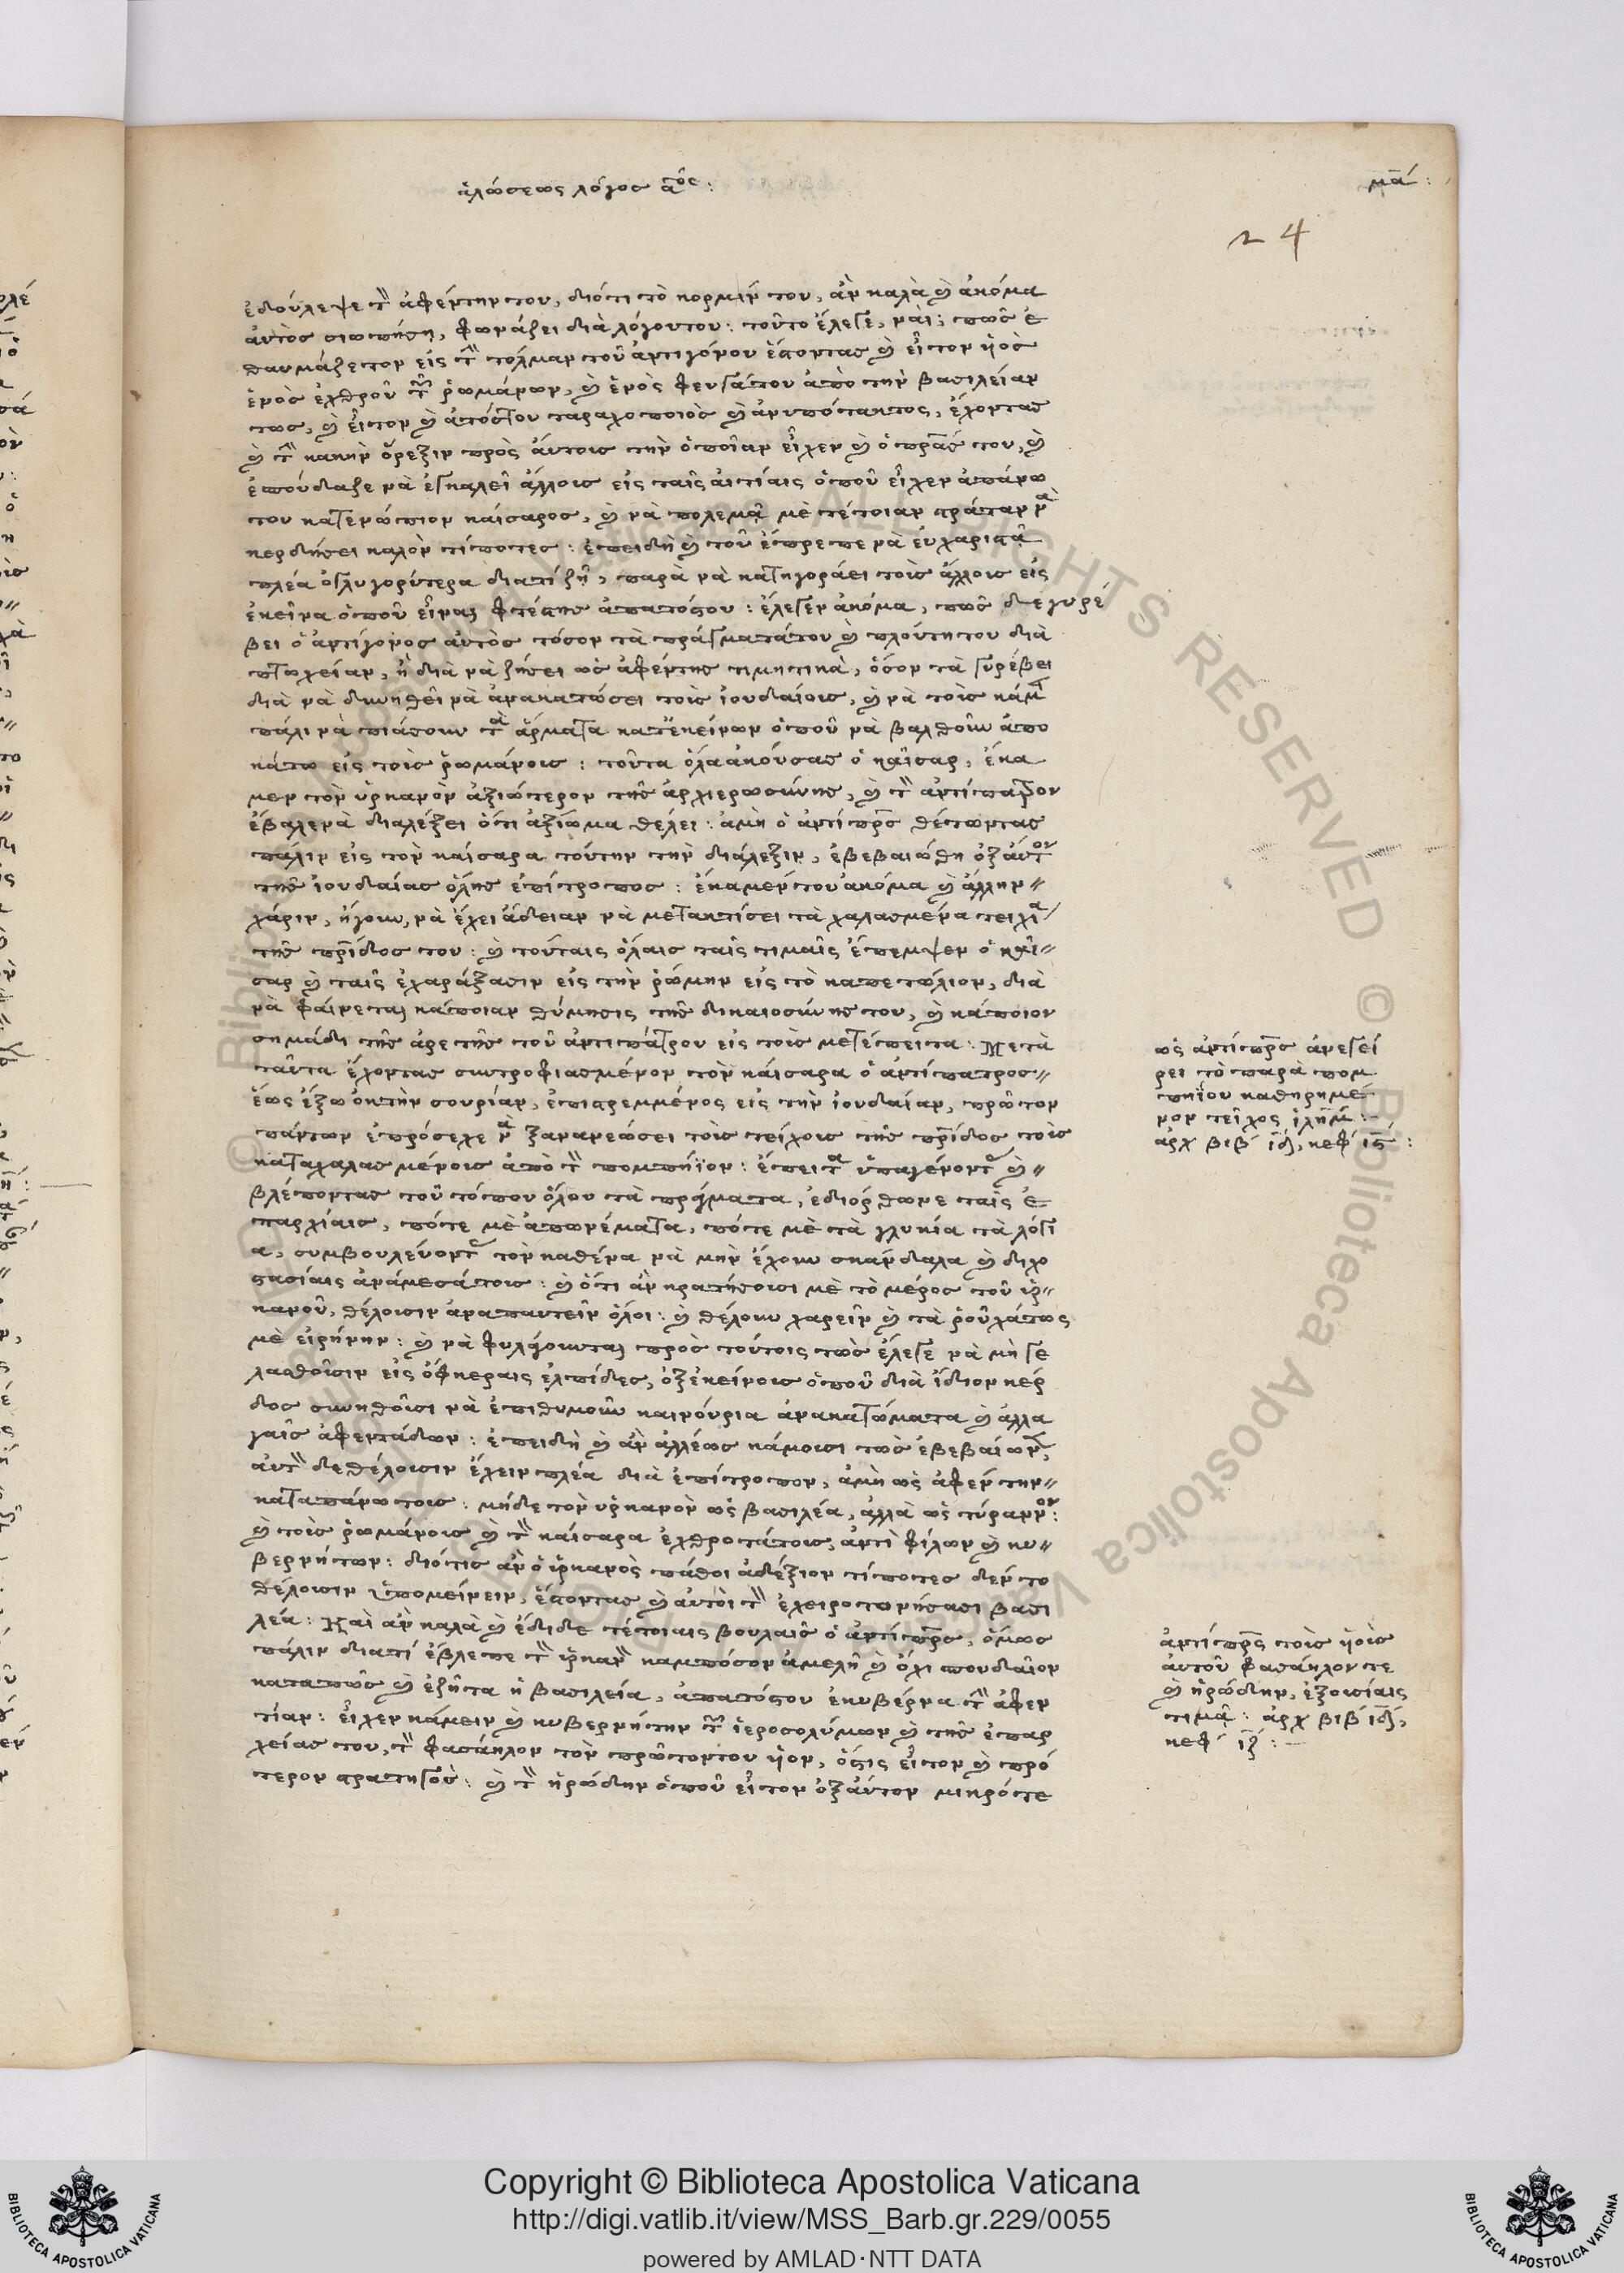 ἁλώσεως λόγος αος:
μα:
24
ἐδούλεψε τὸν ἀφέντην του, διότι τὸ κορμίν του, ἂν καλὰ καὶ ἀκόμα
αὐτὸς σιωπήση, φωνάζει διὰ λόγουτου: τοῦτο ἔλεγε, ναι; πῶς ἐ
θαυμάζετον εἰς τὴν τόλμαν τοῦ ἀντιγόνου ἔστοντας καὶ εἶτον ὑιὸς
ἑνὸς ἐχθροῦ τῶν ῥωμάνων, καὶ ἑνὸς φευγάτου ἀπὸ τὴν βασιλείαν
τως, καὶ εἶτον καὶ ἀπόστου ταραχοποιὸς καὶ ἀνυπότακτος, ἔχοντας
καὶ τὴν κακὴν ὄρεξιν πρὸς αὐτους τὴν ὁποῖαν εἶχεν καὶ ὁ πρας του, καὶ
ἐσπούδαζε νὰ ἐγκαλεῖ ἄλλους εἰς ταῖς αἰτίαις ὁποῦ εἶχεν ἀπάνω
του κατενώπιον καίσαρος, καὶ νὰ πολεμᾶ μὲ τέτοιαν στράταν νὰ
κερδήσει καλὸν τίποτες: ἐπειδὴ καὶ τοῦ ἔπρεπε νὰ εὐχαριστᾶ
πλέα ὀγλυγορύτερα διατί ζῆ, παρὰ νὰ κατηγοράει τοὺς ἄλλους εἰς
ἐκεῖνα ὁποῦ εἶναι φτέστης ἀπατόςου: ἔλεγεν ἀκόμα, πῶς δε γυρέ
βει ὁ ἀντίγονος αὐτὸς τόσον τὰ πράγματάτου καὶ πλούτητου διὰ
πτωχείαν, ἢ διὰ νὰ ζήσει ὡς ἀφέντης τιμητικὰ, ὅσον τὰ γυρέβει
διὰ νὰ δυνηθεῖ νὰ ἀνακατώσει τοὺς ἰουδαίους, καὶ νὰ τοὺς κάμη
πάλι νὰ πιάσουν τὰ ἄρματα κατεκείνων ὁποῦ νὰ βαλθοῦν ἀπο
κάτω εἰς τοὺς ῥωμάνους: τοῦτα ὅλα ἀκούσας ὁ καῖσαρ, ἔκα
μεν τὸν ὑρκανὸν ἀξιώτερον τῆς ἀρχιερωσύνης, καὶ τὸν ἀντίπατρον
ἔβαλε νὰ διαλέξει ὅτι ἀξίωμα θέλει: ἀμὴ ὁ ἀντίπρς θέτωντας
πάλιν εἰς τὸν καίσαρα τούτην τὴν διάλεξιν, ἐβεβαιώθη ὀξαὐτον
τῆς ἰουδαίας ὅλης ἐπίτροπος: ἔκαμέν του ἀκόμα καὶ ἄλλην
χάριν, ἤγουν, νὰ ἔχει ἄδειαν νὰ μετακτίσει τὰ χαλασμένα τειχία
τῆς πρίδος του: καὶ τούταις ὅλαις ταῖς τιμαῖς ἔπεμψεν ὁ καῖ
σαρ καὶ ταῖς ἐχαράξασιν εἰς τὴν ῥώμην εἰς τὸ καπετώλιον, διὰ
νὰ φαίνεται κάποιαν θύμησις τῆς δικαιοσύνης του, καὶ κάποιον
σημάδι τῆς ἀρετῆς τοῦ ἀντιπάτρου εἰς τοὺς μετέπειτα: Μετὰ
ταῦτα ἔχοντας συντροφιασμένον τὸν καίσαρα ὁ ἀντίπατρος
ἕως ἔξω ὀκτὴν συρίαν, ἐπιστρεμμένος εἰς τὴν ἰουδαίαν, πρῶτον
πάντων ἐπρόσεχε νὰ ξανανεώσει τοὺς τείχους τῆς πρίδος τοὺς
καταχαλασμένους ἀπὸ τὸν πομπήϊον: ἔπειτα ὑπαγένοντας καὶ
βλέποντας τοῦ τόπου ὅλου τὰ πράγματα, ἐδιόρθωνε ταῖς ἐ
παρχίαις, πότε μὲ ἀπωνέματα, πότε μὲ τὰ γλυκία τὰ λόγι
α, συμβουλεύοντας τὸν καθένα νὰ μὴν ἔχουν σκάνδαλα καὶ διχο
στασίαις ἀνάμεσάτους: καὶ ὅτι ἂν κρατήσουσι μὲ τὸ μέρος τοῦ ὑρ
κανοῦ, θέλουσιν ἀναπαυτεῖν ὅλοι: καὶ θέλουν χαρεῖν καὶ τὰ ῥοῦχάτως
μὲ εἰρήνην: καὶ νὰ φυλάγουνται πρὸς τούτοις τως ἔλεγε νὰ μὴ γε
λασθοῦσιν εἰς ὀφκεραις ἐλπίδες, ὀξεκείνους ὁποῦ διὰ ἴδιον κέρ
δος συνηθοῦσι νὰ ἐπιθυμοῦν καινούρια ἀνακατώματα καὶ ἀλλα
γαῖς ἀφεντάδων: ἐπειδὴ καὶ ἂν ἀλλέως κάμουσι τως ἐβεβαίωνε,
αὐτὸν δε θέλουσιν ἔχειν πλέα διὰ ἐπίτροπον, ἀμὴ ὡς ἀφέντην
καταπάνω τους: μήδε τὸν ὑρκανὸν ὡς βασιλέα, ἀλλὰ ὡς τύραννον:
καὶ τοὺς ῥωμάνους καὶ τὸν καίσαρα ἐχθροτάτους, ἀντὶ φίλων καὶ κυ
βερνήτων: διότις ἂν ὁ ὑρκανὸς πάθοι ἀδέξιον τίποτες δεν το
θέλουσιν ὑπομείνειν, ἔστοντας καὶ αὐτοὶ τὸν ἐχειροτωνήσασι βασι
λέα: Καὶ ἂν καλὰ καὶ ἔδιδε τέτοιαις βουλαῖς ὁ ἀντίπρς, ὅμως
πάλιν διατί ἔβλεπε τὸν ὑρκανὸν καμπόσον ἀμελῆ καὶ ὄχι σπουδαῖον
καταπῶς καὶ ἐζῆτα ἡ βασιλεία, ἀπατόςου ἐκυβέρνα τὴν ἀφεν
τίαν: εἶχεν κάμειν καὶ κυβερνήτην τῶν ἱεροσολύμων καὶ τῆς ἐπαρ
χείας του, τὸν φασάηλον τὸν πρῶτοντου ὑιον, ὅστις εἶτον καὶ πρό
τερον στρατηγος: καὶ τὸν ἡρώδην ὁποῦ εἶτον ὀξαὐτον μικρότε
ὡς ἀντίπρς ἀνεγεί
ρει τὸ παρὰ πομ
πηΐου καθηρημέ
νον τεῖχος ἱλημ:
ἀρχ βιβ ιδ, κεφ ις:
ἀντίπρς τοὺς ὑιοὺς
αὐτοῦ φασάηλον τε
καὶ ἡρώδην, ἐξουσίαις
τιμᾶ: ἀρχ βιβ ιδ,
κεφ ιζ:
© Biblioteca Apostolica Vaticana ALL RIGHTS RESERVED
Copyright © Biblioteca Apostolica Vaticana
http://digi.vatlib.it/view/MSS_Barb.gr.229/0055
powered by AMLAD·NTT DATA
BIBLIOTECA APOSTOLICA VATICANA
BIBLIOTECA APOSTOLICA VATICANA